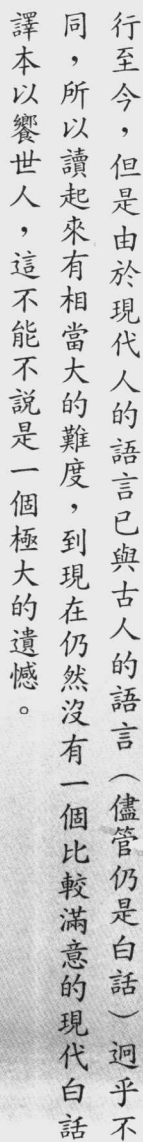 行至今，但是由於現代人的語言已與古人的語言（儘管仍是白話）迥乎不
同，所以讀起來有相當大的難度，到現在仍然沒有一個比較滿意的現代白話
譯本以饗世人，這不能不說是一個極大的遺憾。